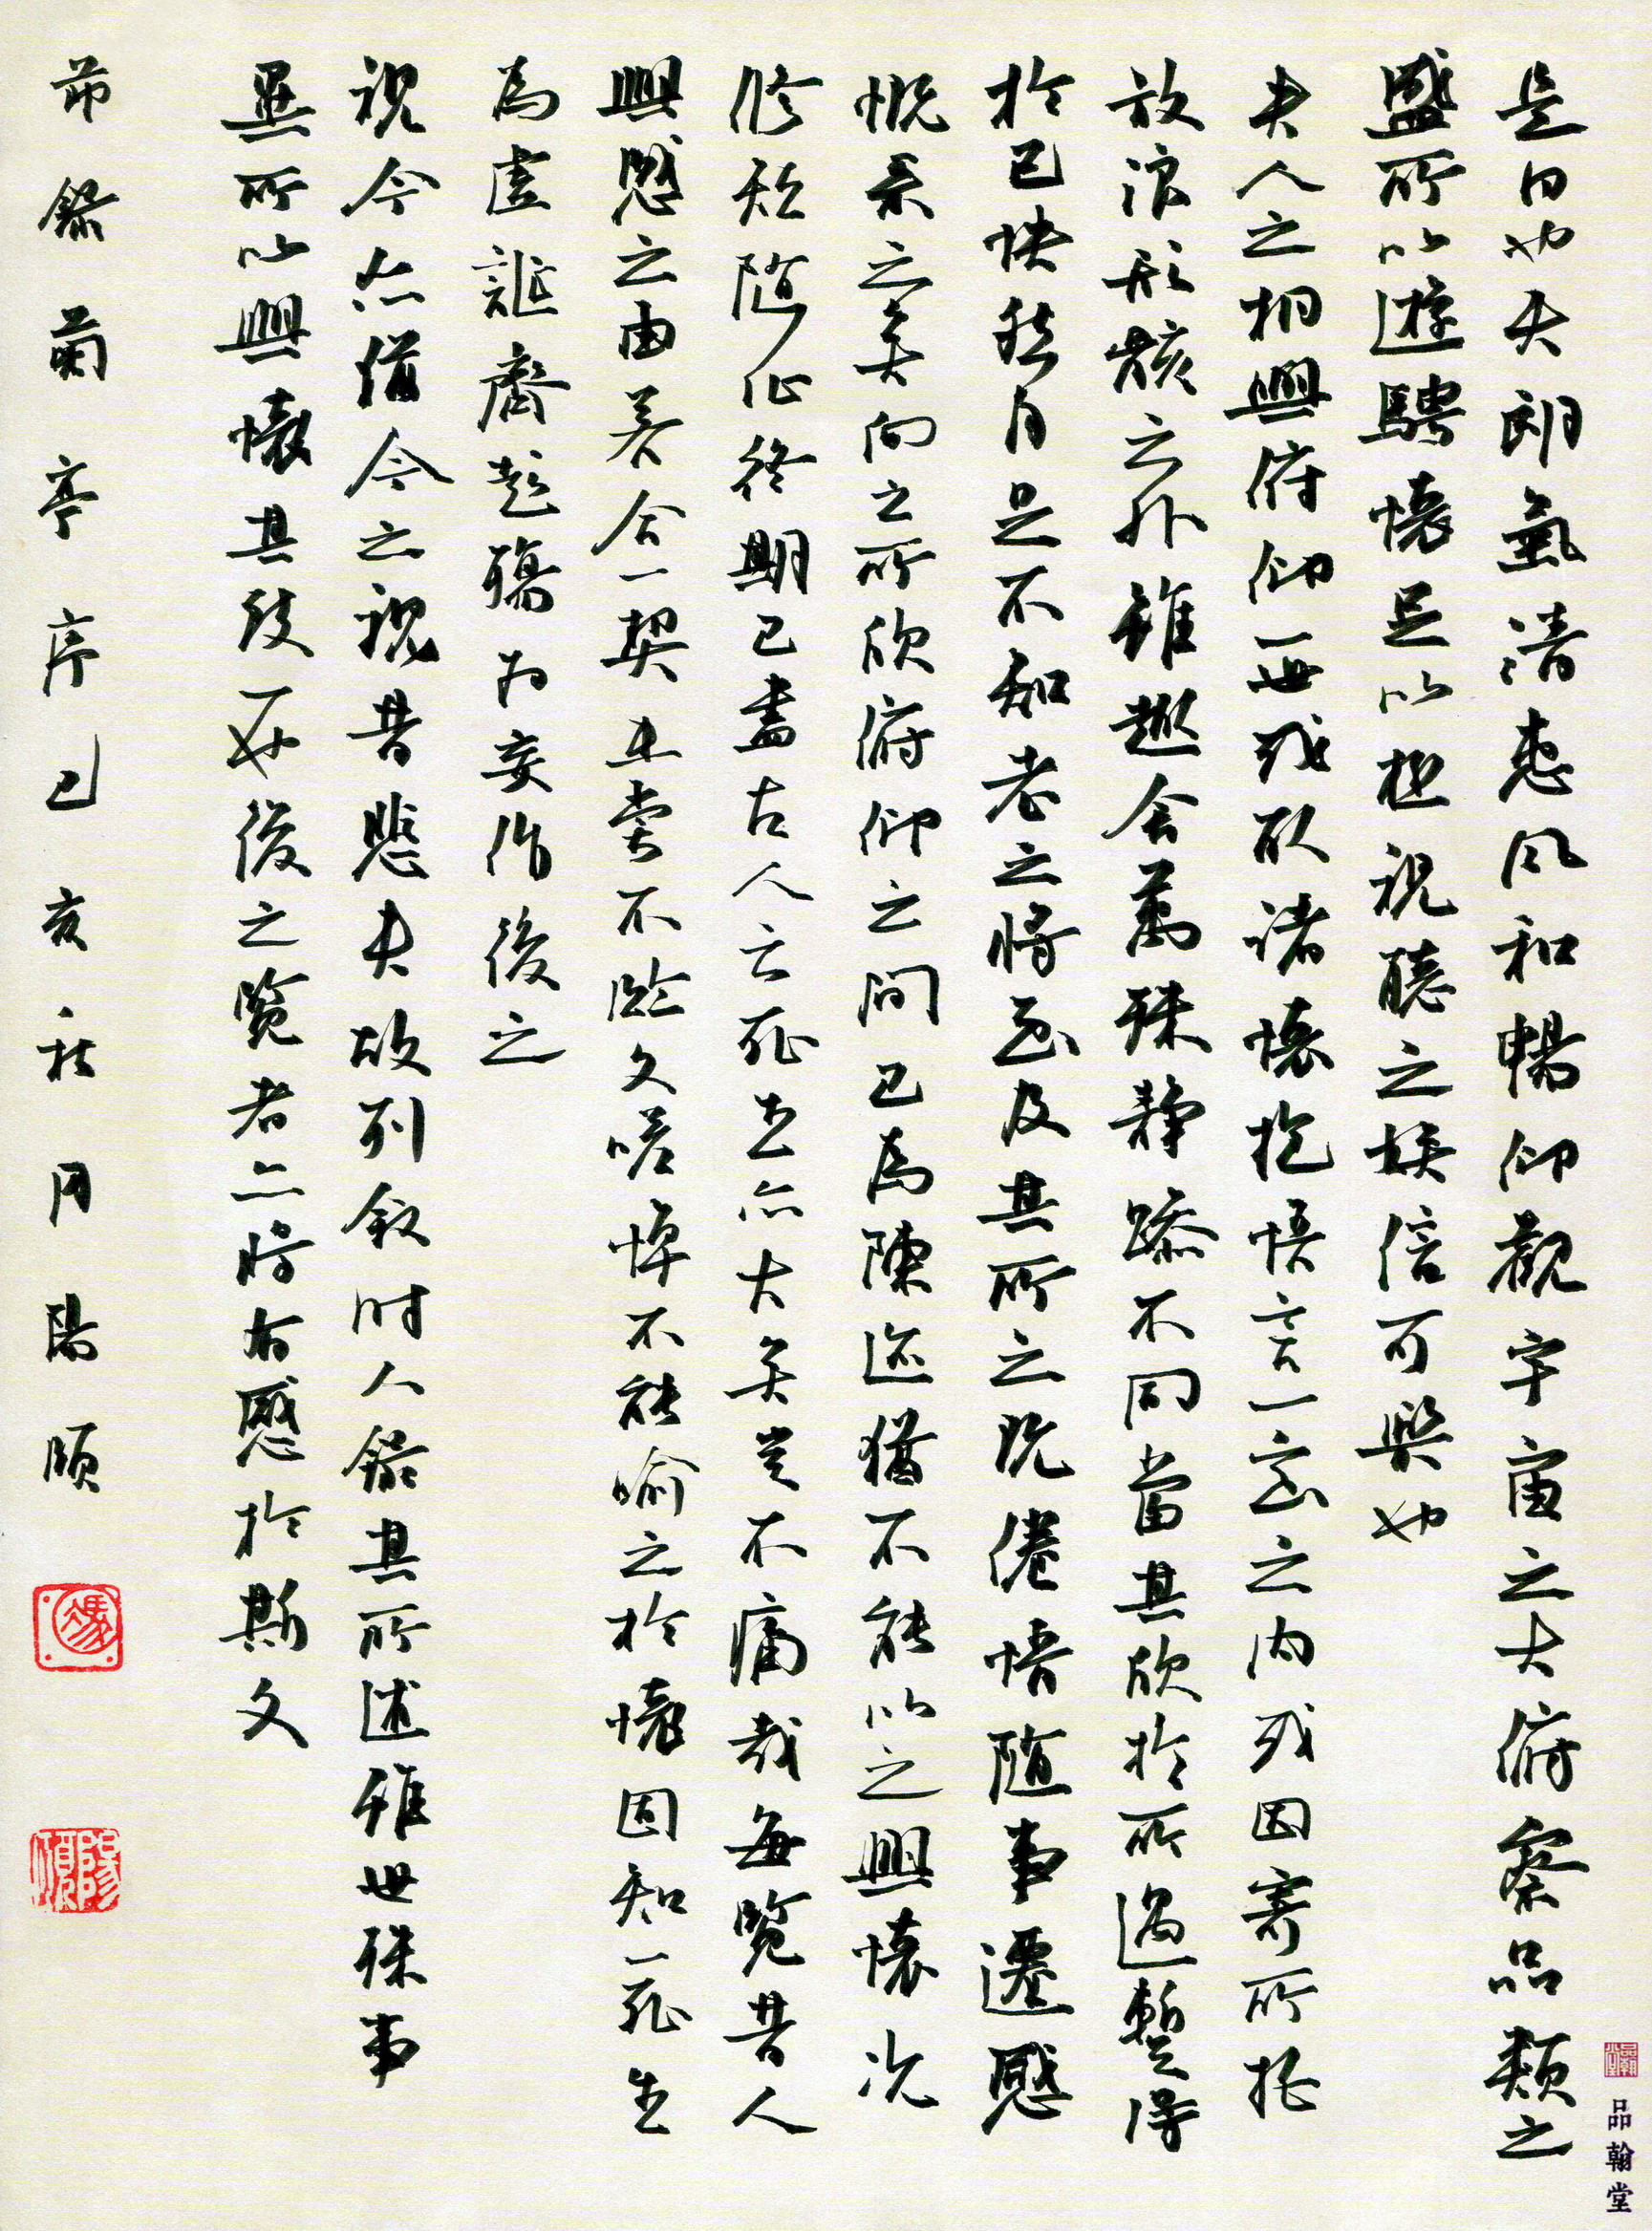 是日也天朗氣清惠風和暢仰觀宇宙之大俯察品類之
盛所以遊騁懷足以極視聽之娛信可樂也
夫人之相與俯仰一世或取諸懷抱悟言一室之內或因寄所託
放浪形骸之外雖趣舍萬殊靜躁不同當其欣於所遇暫得
於己快然自足不知老之將至及其所之既倦情隨事遷感
慨系之矣向之所欣俯仰之間已為陳迹猶不能以之興懷況
修短隨化終期已盡古人云死生亦大矣豈不痛哉每覽昔人
興感之由若合一契未嘗不臨文嗟悼不能喻之於懷固知一死生
為虛誕齊彭殤為妄作後之
視今亦猶今之視昔悲夫故列敘時人錄其所述雖世殊事
異所以興懷其致一也後之覽者亦將有感於斯文
節錄蘭亭序己亥秋月陽頎
品翰堂